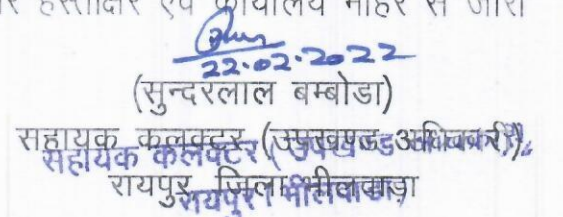 र हस्ताक्षर एवं कार्यालय मोहर से जारी
22.02.2022
(सुन्दरलाल बम्बोडा)
सहायक कलक्टर (उपखण्ड अधिकारी)
सहायक कलक्टर (उपखण्ड
रायपुर जिला भीलवाड़ा
रायपुर भीलवाड़ा